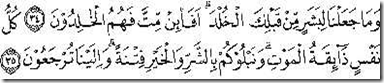 وَمَا جَعَلْنَا لِبَشَرٍ مِّن قَبْلِكَ ٱلْخُلْدَ أَفَإِي۟ن مِّتَّ فَهُمُ ٱلْخَٰلِدُونَ ٣٤ كُلُّ
نَفْسٍ ذَآئِقَةُ ٱلْمَوْتِ وَنَبْلُوكُم بِٱلشَّرِّ وَٱلْخَيْرِ فِتْنَةً وَإِلَيْنَا تُرْجَعُونَ ٣٥